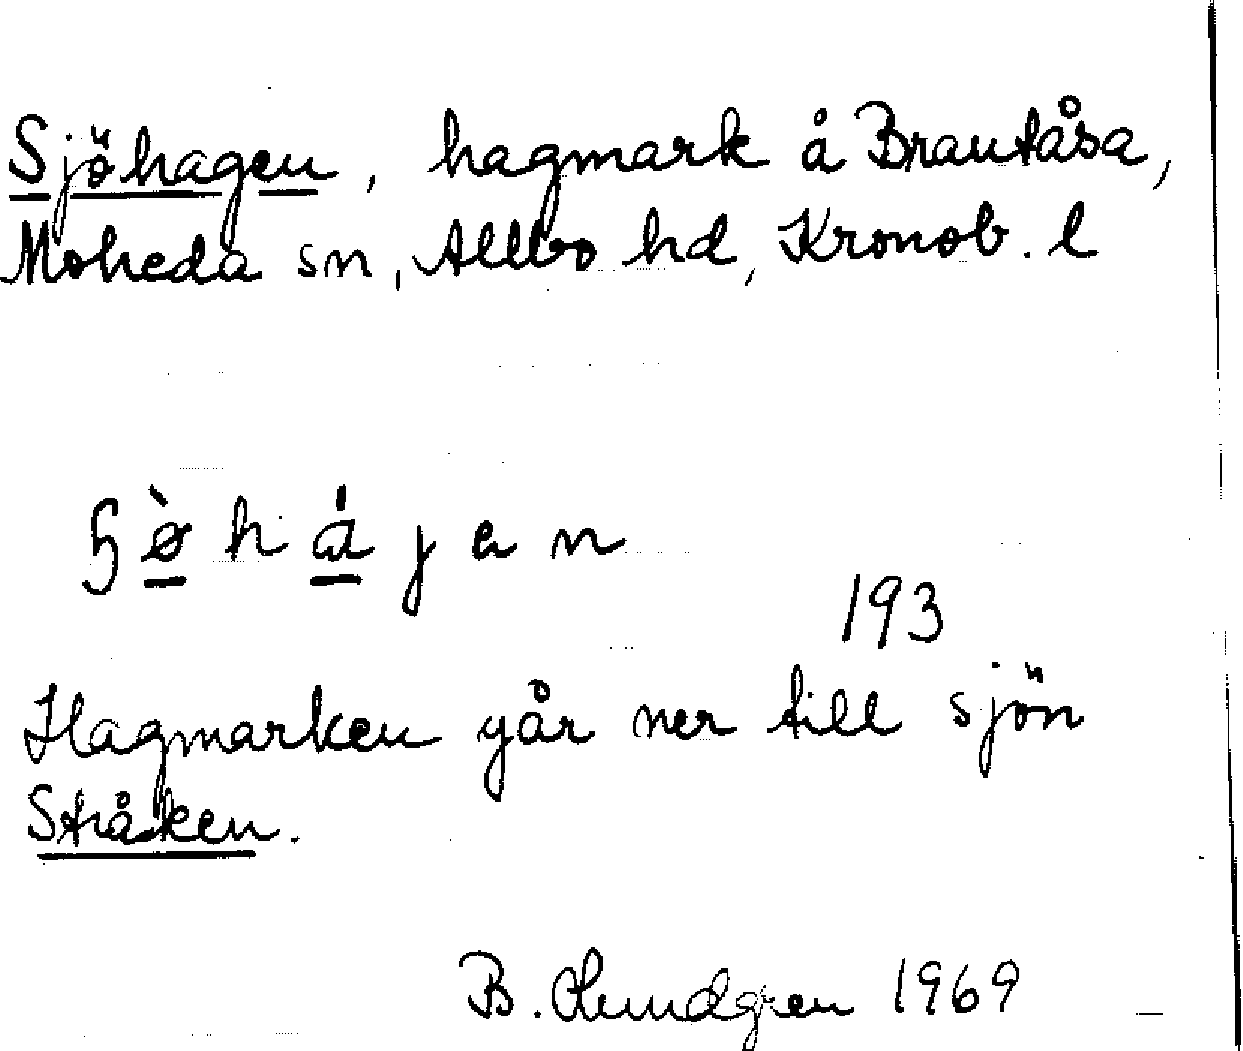 Sjöhagen, hagmark å Brantåsa,
Moheda sn, Allbo hd, Kronob. l
ɧø̀háɟan
193
Hagmarken går ner till sjön
Stråken.
B. Lundgren 1969